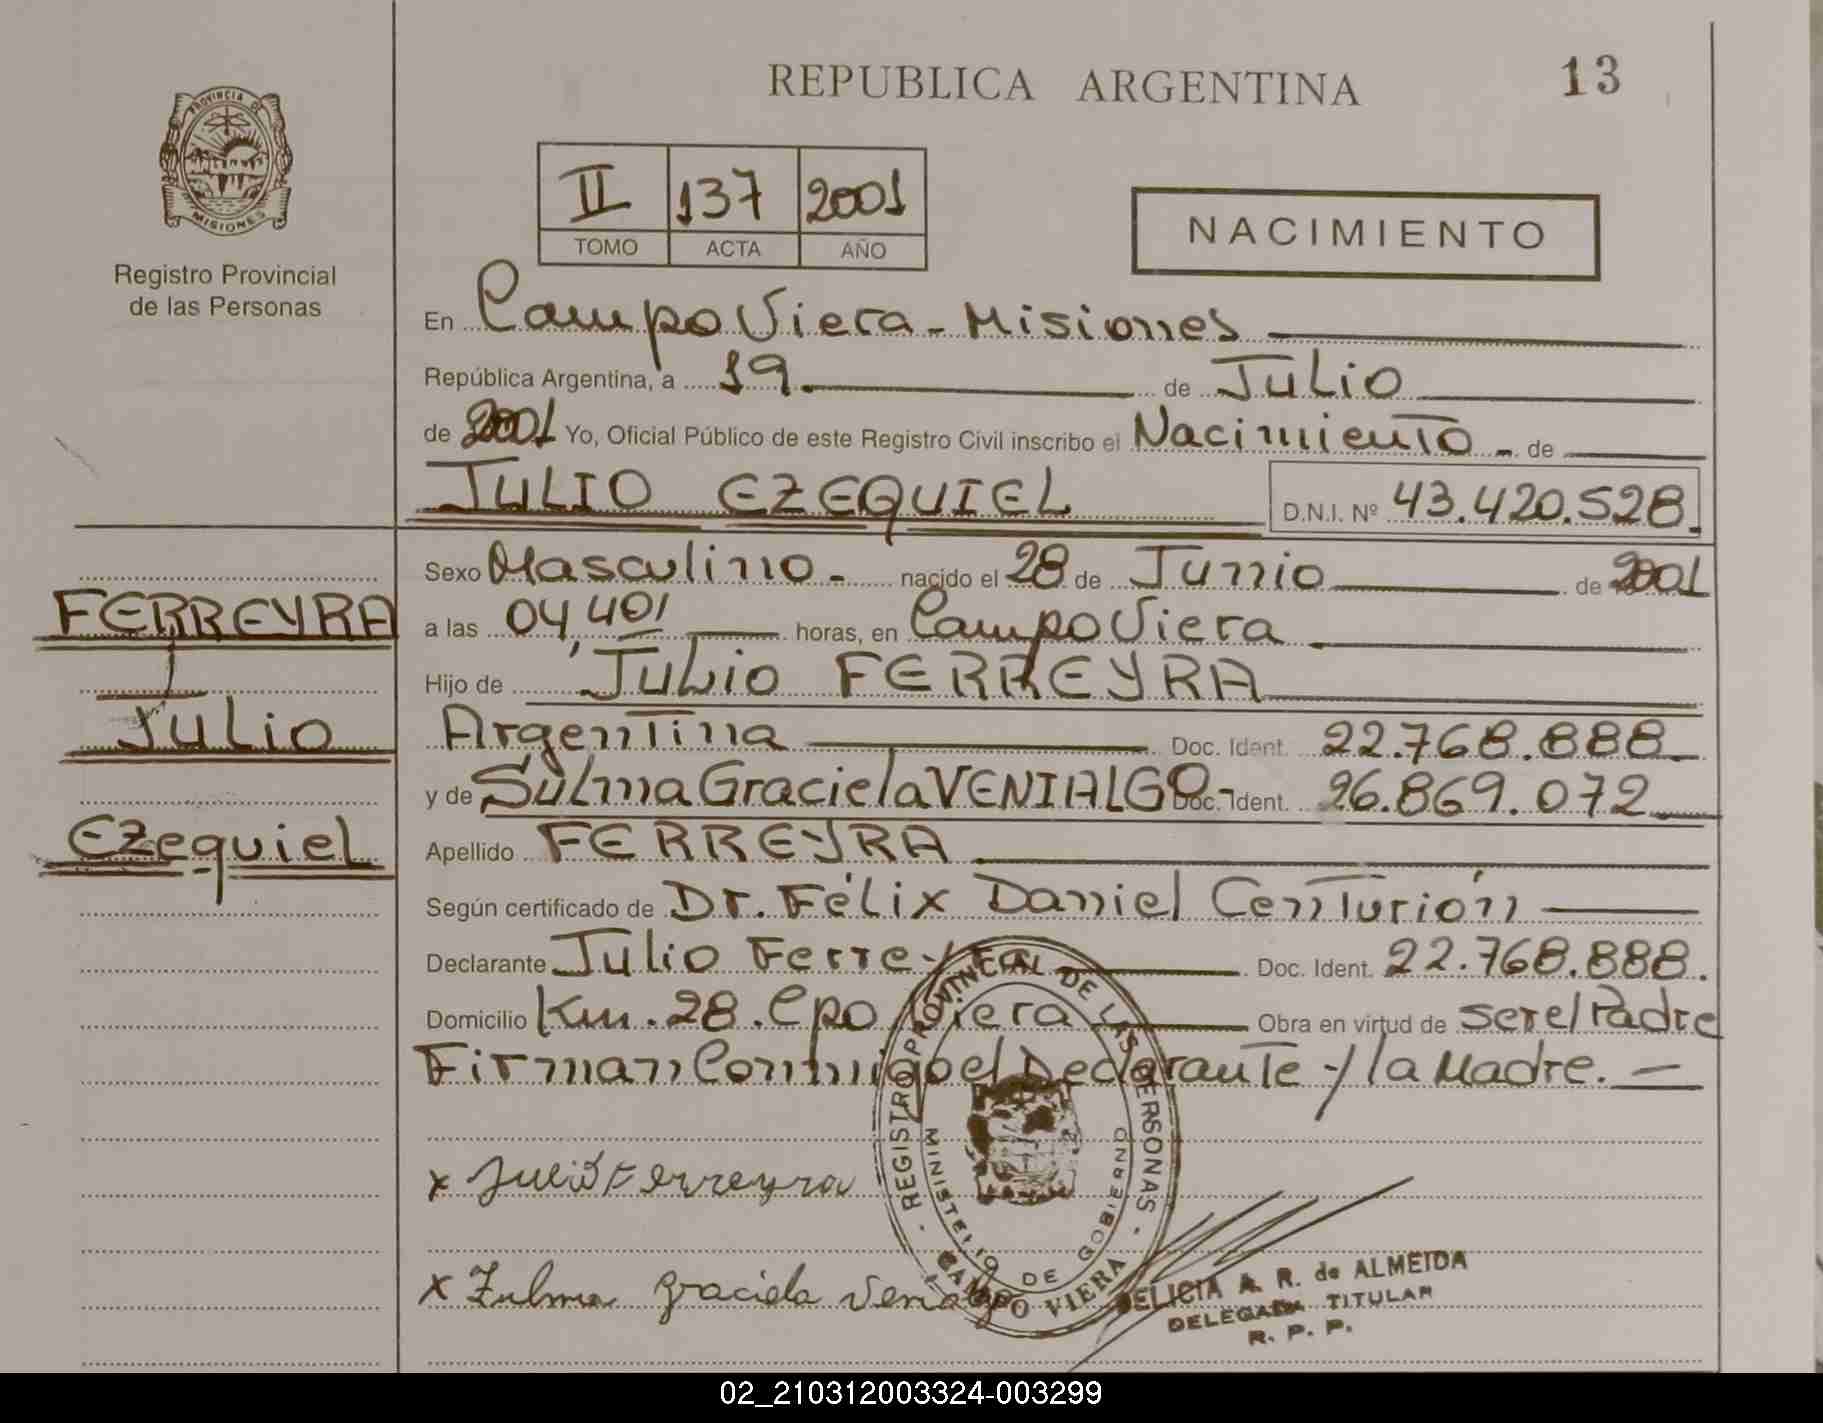 REPUBLICA ARGENTINA
13
PROVINCIA DE MISIONES
Registro Provincial
de las Personas
II 137 2001
TOMO ACTA AÑO
NACIMIENTO
En Campo Viera - Misiones
República Argentina, a 19 de Julio
de 2001 Yo, Oficial Público de este Registro Civil inscribo el Nacimiento - de
JULIO EZEQUIEL D.N.I. Nº 43.420.528.
Sexo Masculino - nacido el 28 de Junio de 2001
a las 04,40' horas, en Campo Viera
Hijo de Julio FERREYRA
Argentina Doc. Ident. 22.768.888
y de Sulma Graciela VENIALGO- Doc. Ident. 26.869.072
Apellido FERREYRA
Según certificado de Dr. Félix Daniel Centurión
Declarante Julio Ferreyra Doc. Ident. 22.768.888.
Domicilio Km. 28. Cpo Viera Obra en virtud de ser el Padre
Firman Conmigo el Declarante y la Madre. -
FERREYRA
Julio
Ezequiel
x Julio Ferreyra
x Zulma Graciela Venialgo
REGISTRO PROVINCIAL DE LAS PERSONAS - CAMPO VIERA -
MINISTERIO DE GOBIERNO
DELICIA A. R. de ALMEIDA
DELEGADA TITULAR
R. P. P.
02_210312003324-003299